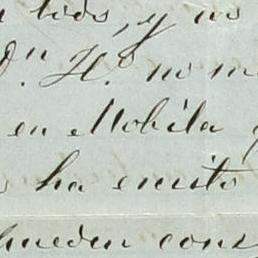 tido, y no
Dn. Ho. no m
en Mobila y
ha escrito
pueden cons